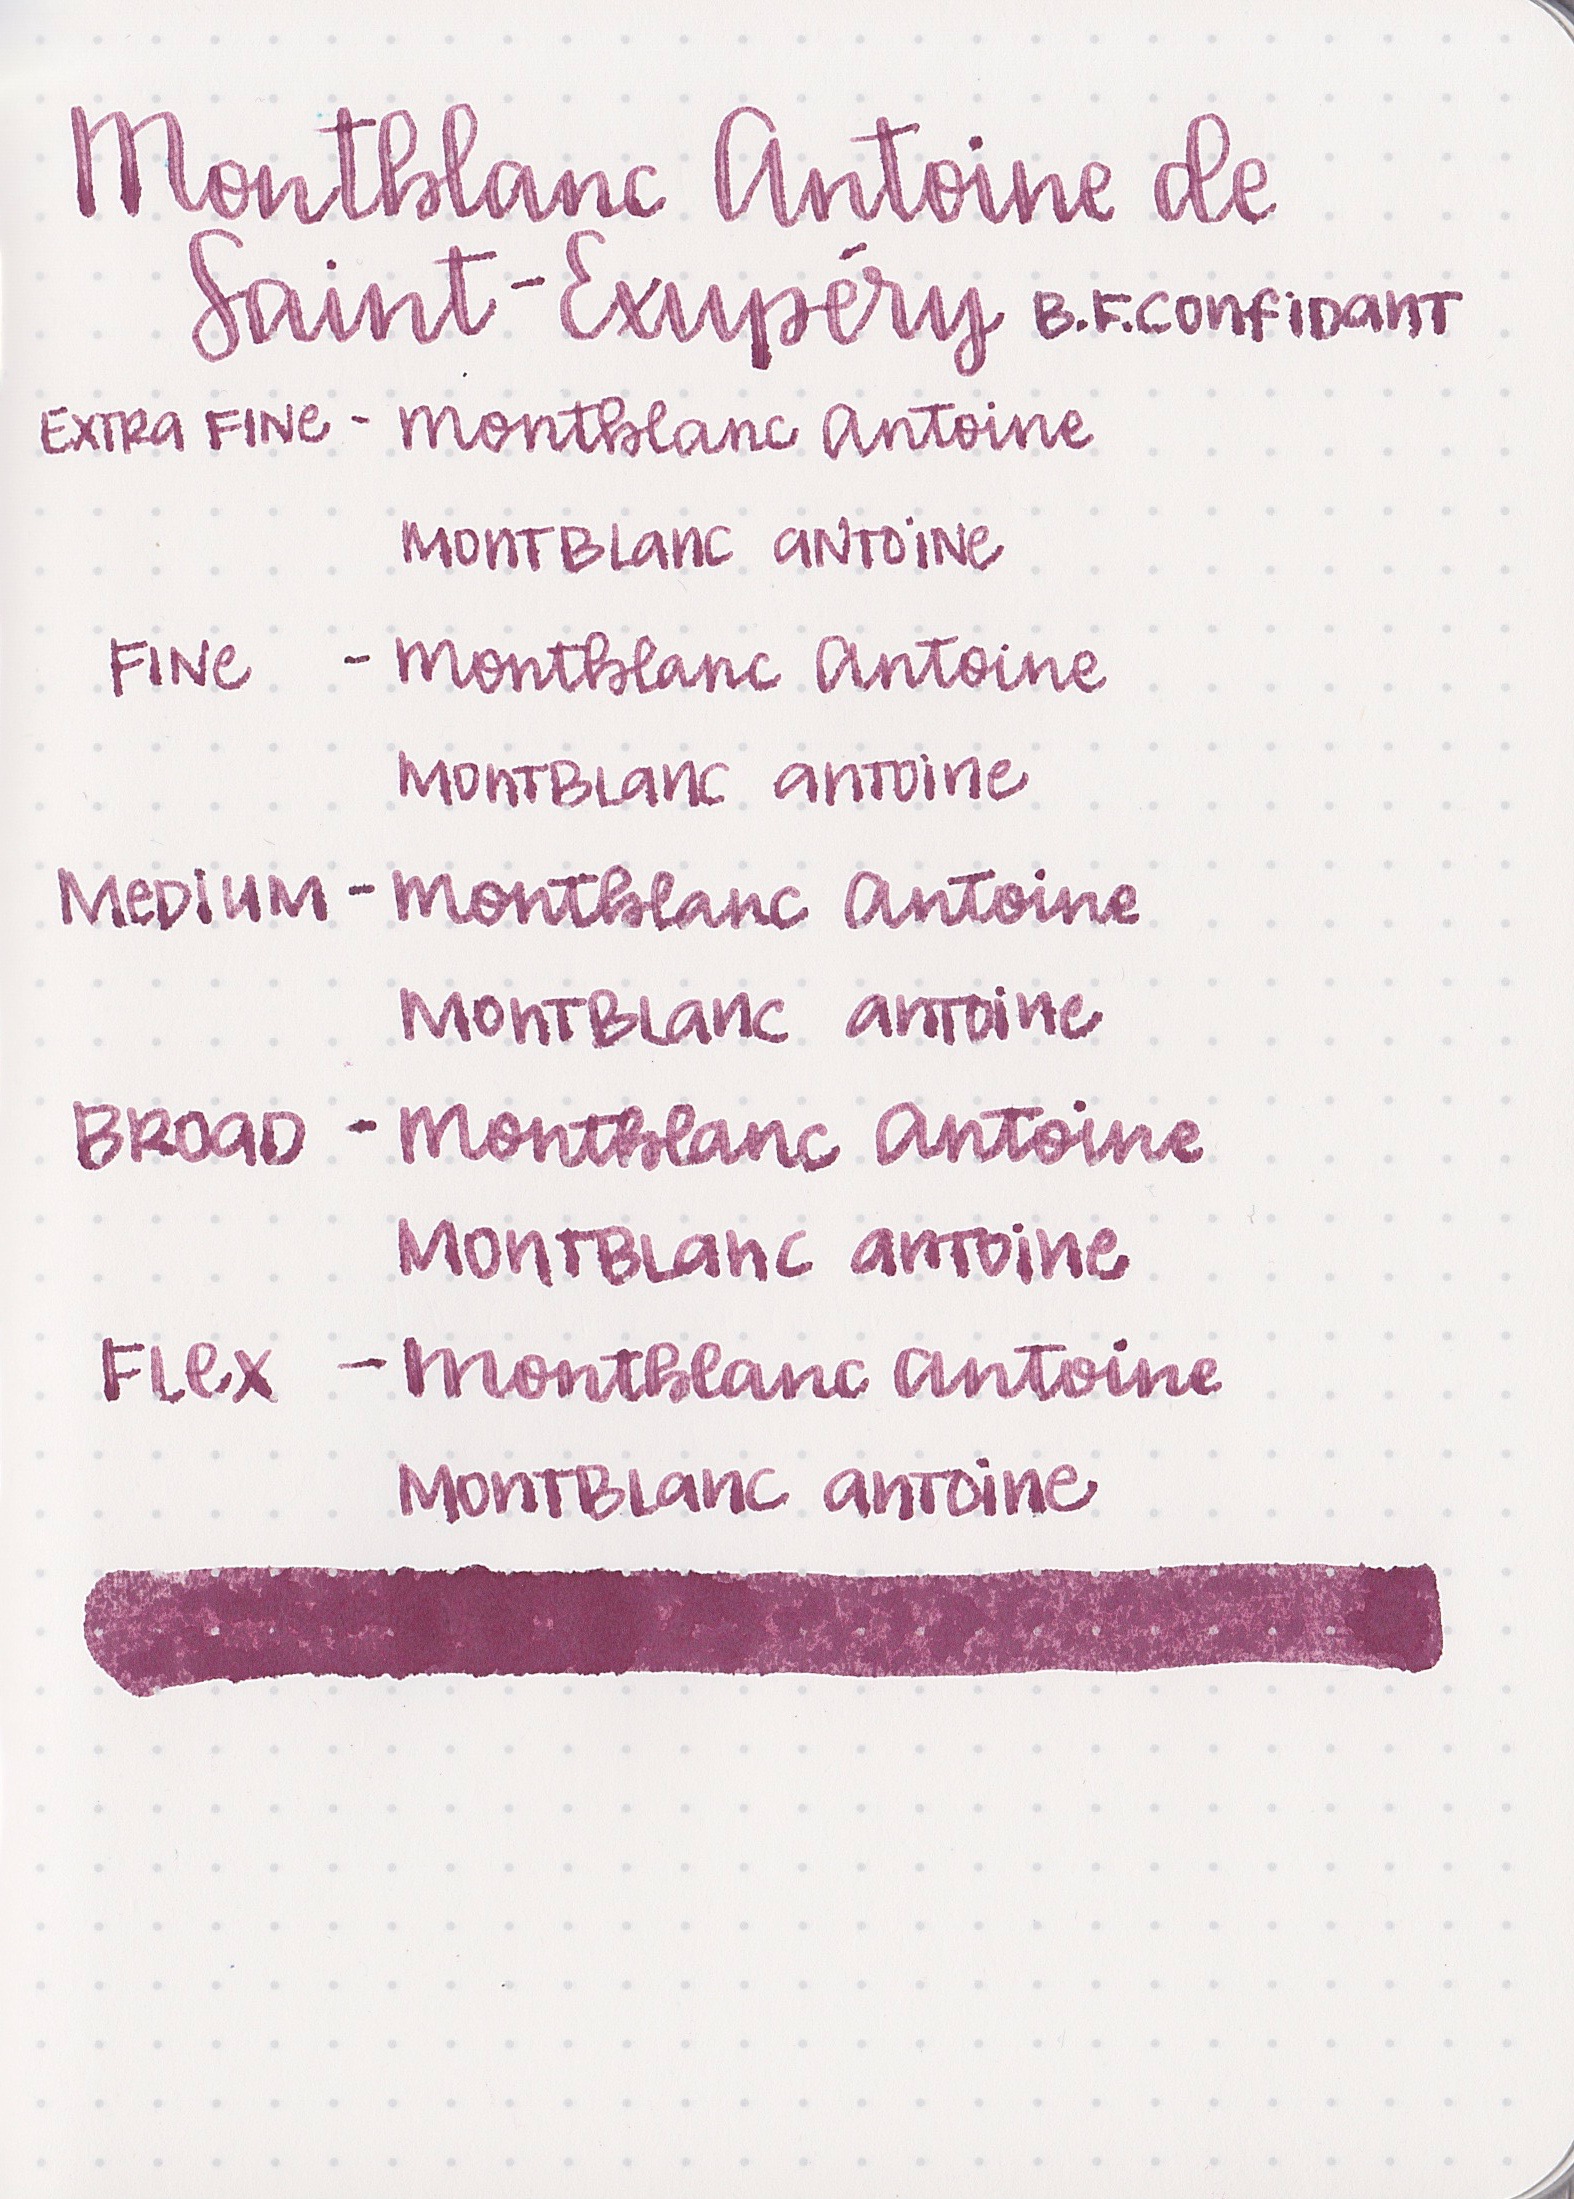 Montblanc Antoine de
Saint-Exupéry B.F. Confidant
Extra Fine - Montblanc Antoine
Montblanc Antoine
Fine - Montblanc Antoine
Montblanc Antoine
Medium - Montblanc Antoine
Montblanc Antoine
Broad - Montblanc Antoine
Montblanc Antoine
Flex - Montblanc Antoine
Montblanc Antoine